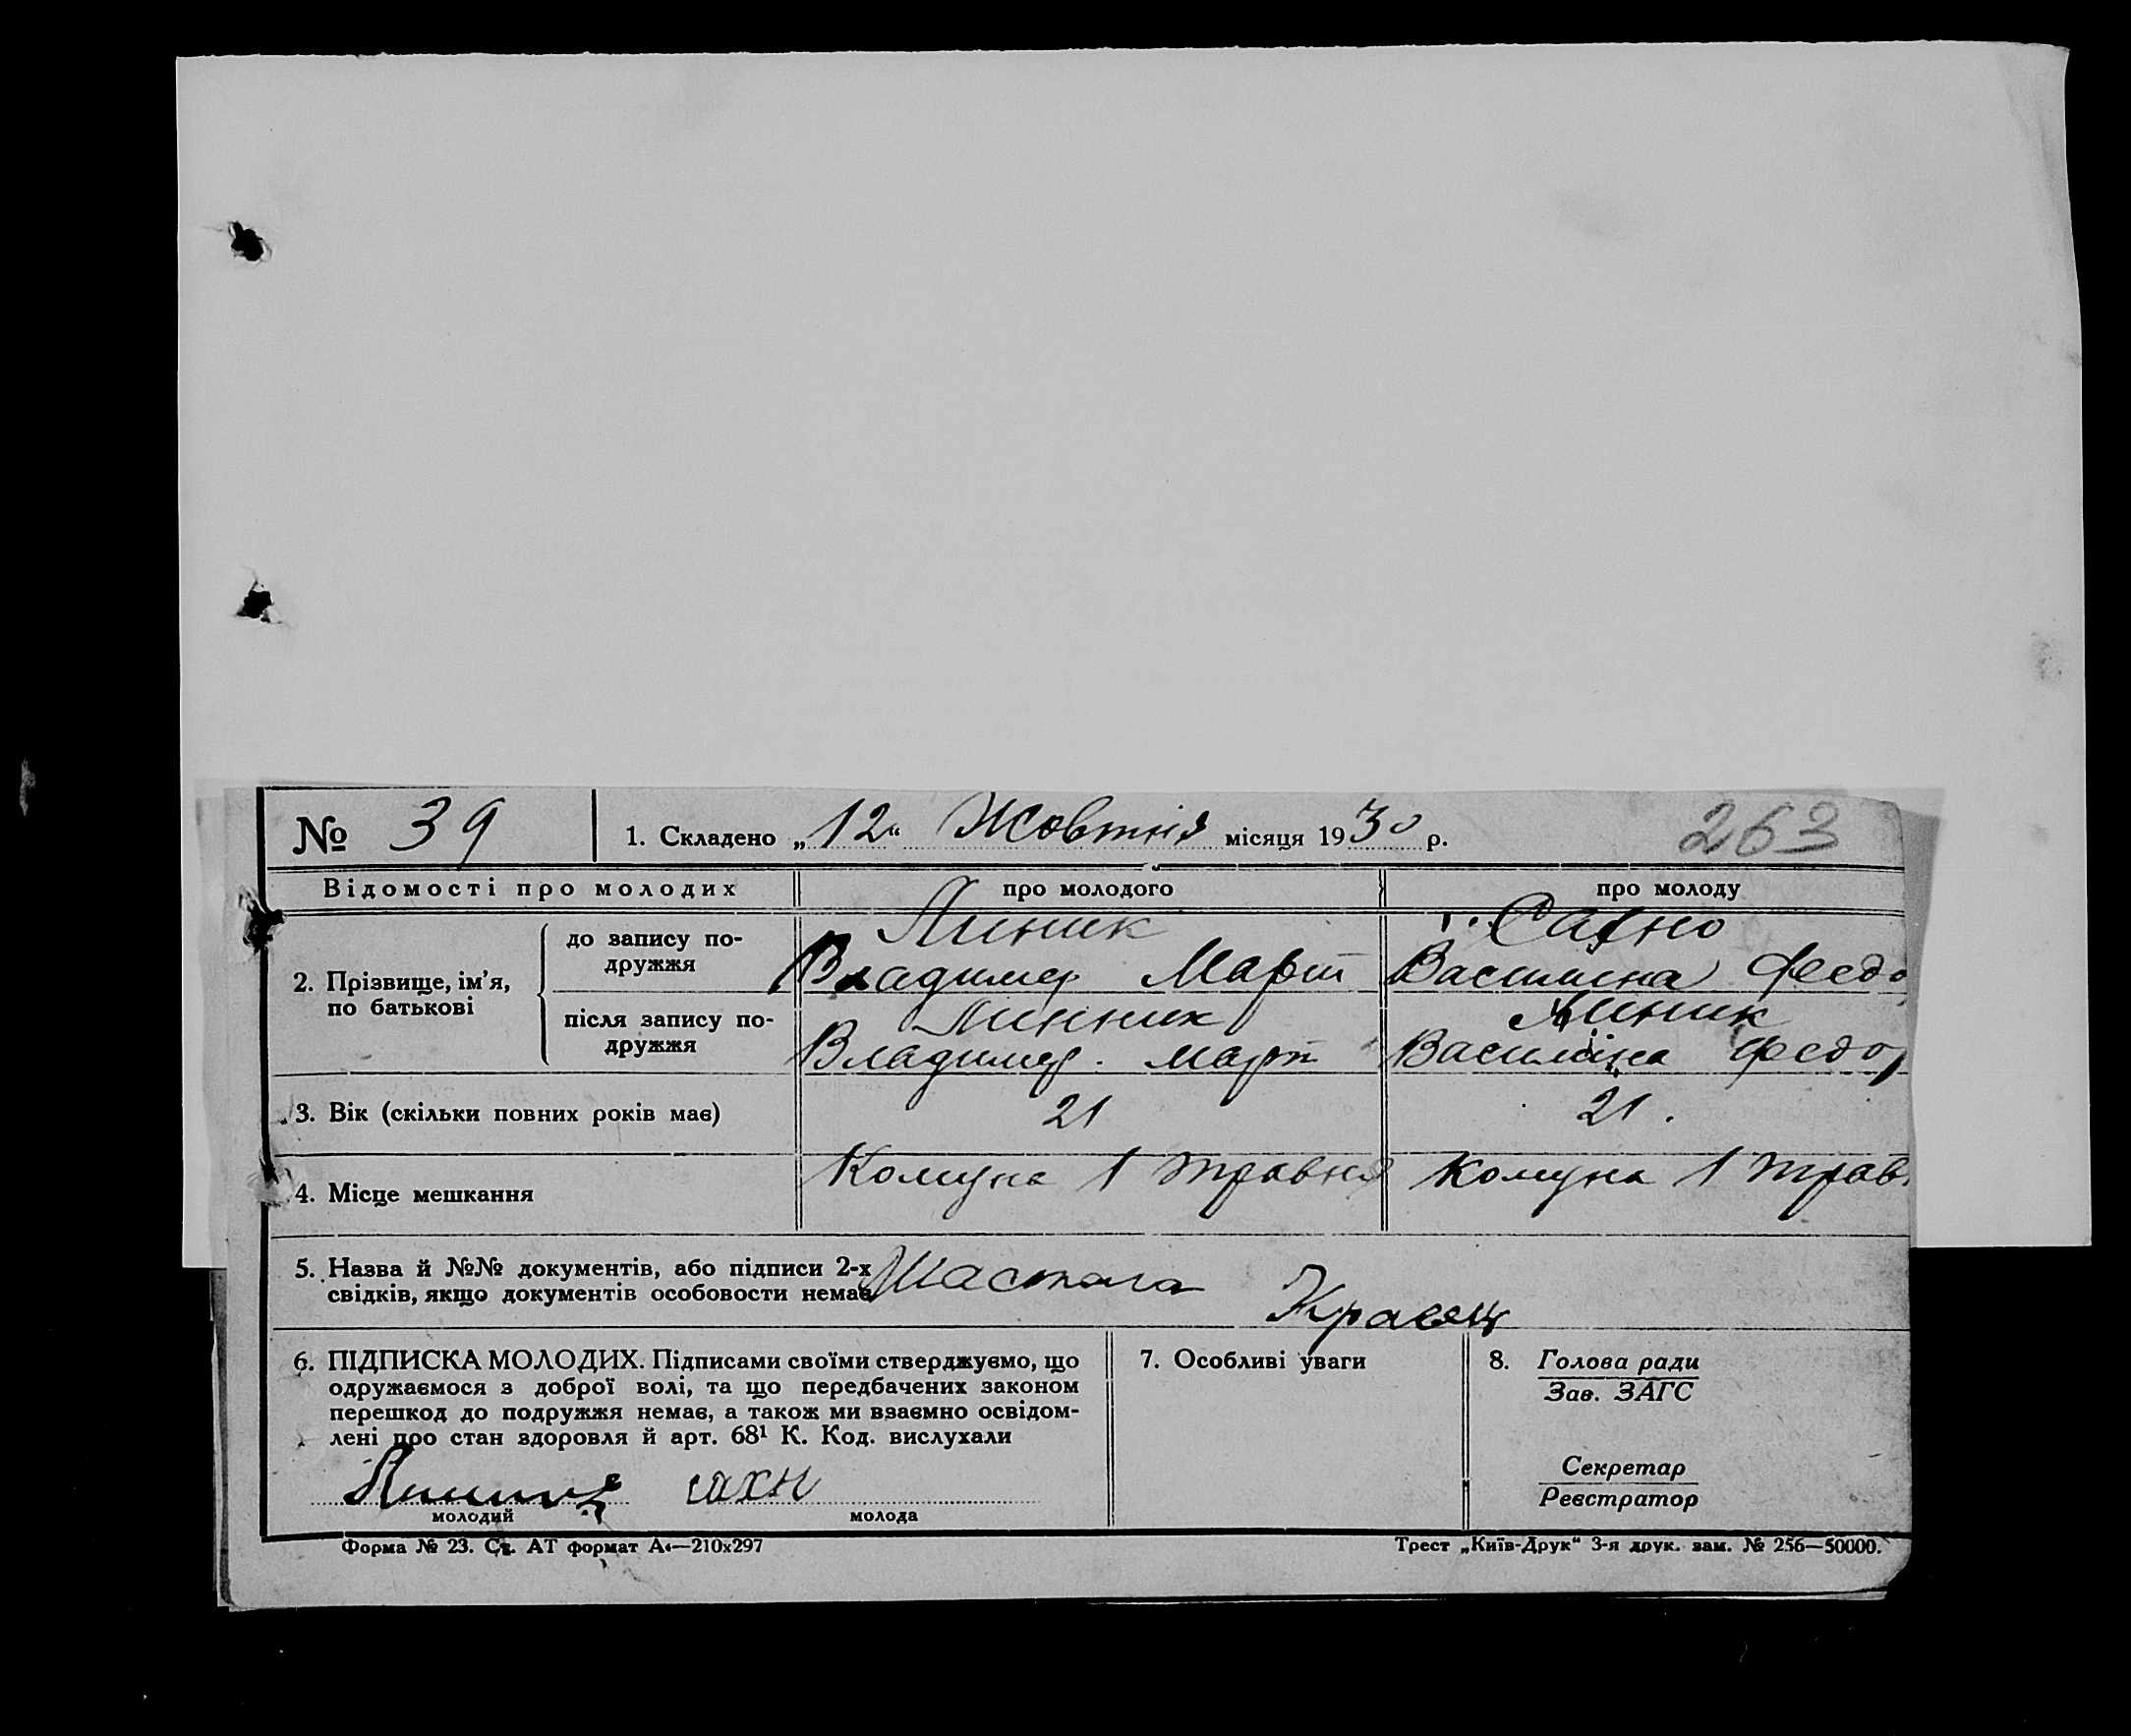 № 39
1. Складено „12“ Жовтня місяця 1930 р.
263
Відомості про молодих
про молодого
про молоду
2. Прізвище, ім’я,
по батькові
до запису по-
дружжя
Линик
Владимер Март
Сахно
Василина Федо
після запису по-
дружжя
Линник
Владимер. Март
Линик
Василина Федор
3. Вік (скільки повних років має)
21
21.
4. Місце мешкання
Комуна 1 травня
Комуна 1 трав
5. Назва й №№ документів, або підписи 2-х
свідків, якщо документів особовости немає
Кравец
6. ПІДПИСКА МОЛОДИХ. Підписами своїми стверджуємо, що
одружаємося з доброї волі, та що передбачених законом
перешкод до подружжя немає, а також ми взаємно освідом-
лені про стан здоровля й арт. 68¹ К. Код. вислухали
сахн
молодий
молода
7. Особливі уваги
8. Голова ради
Зав. ЗАГС
Секретар
Реєстратор
Форма № 23. Ст. АТ формат А4—210х297
Трест „Київ-Друк“ 3-я друк. зам. № 256—50000.